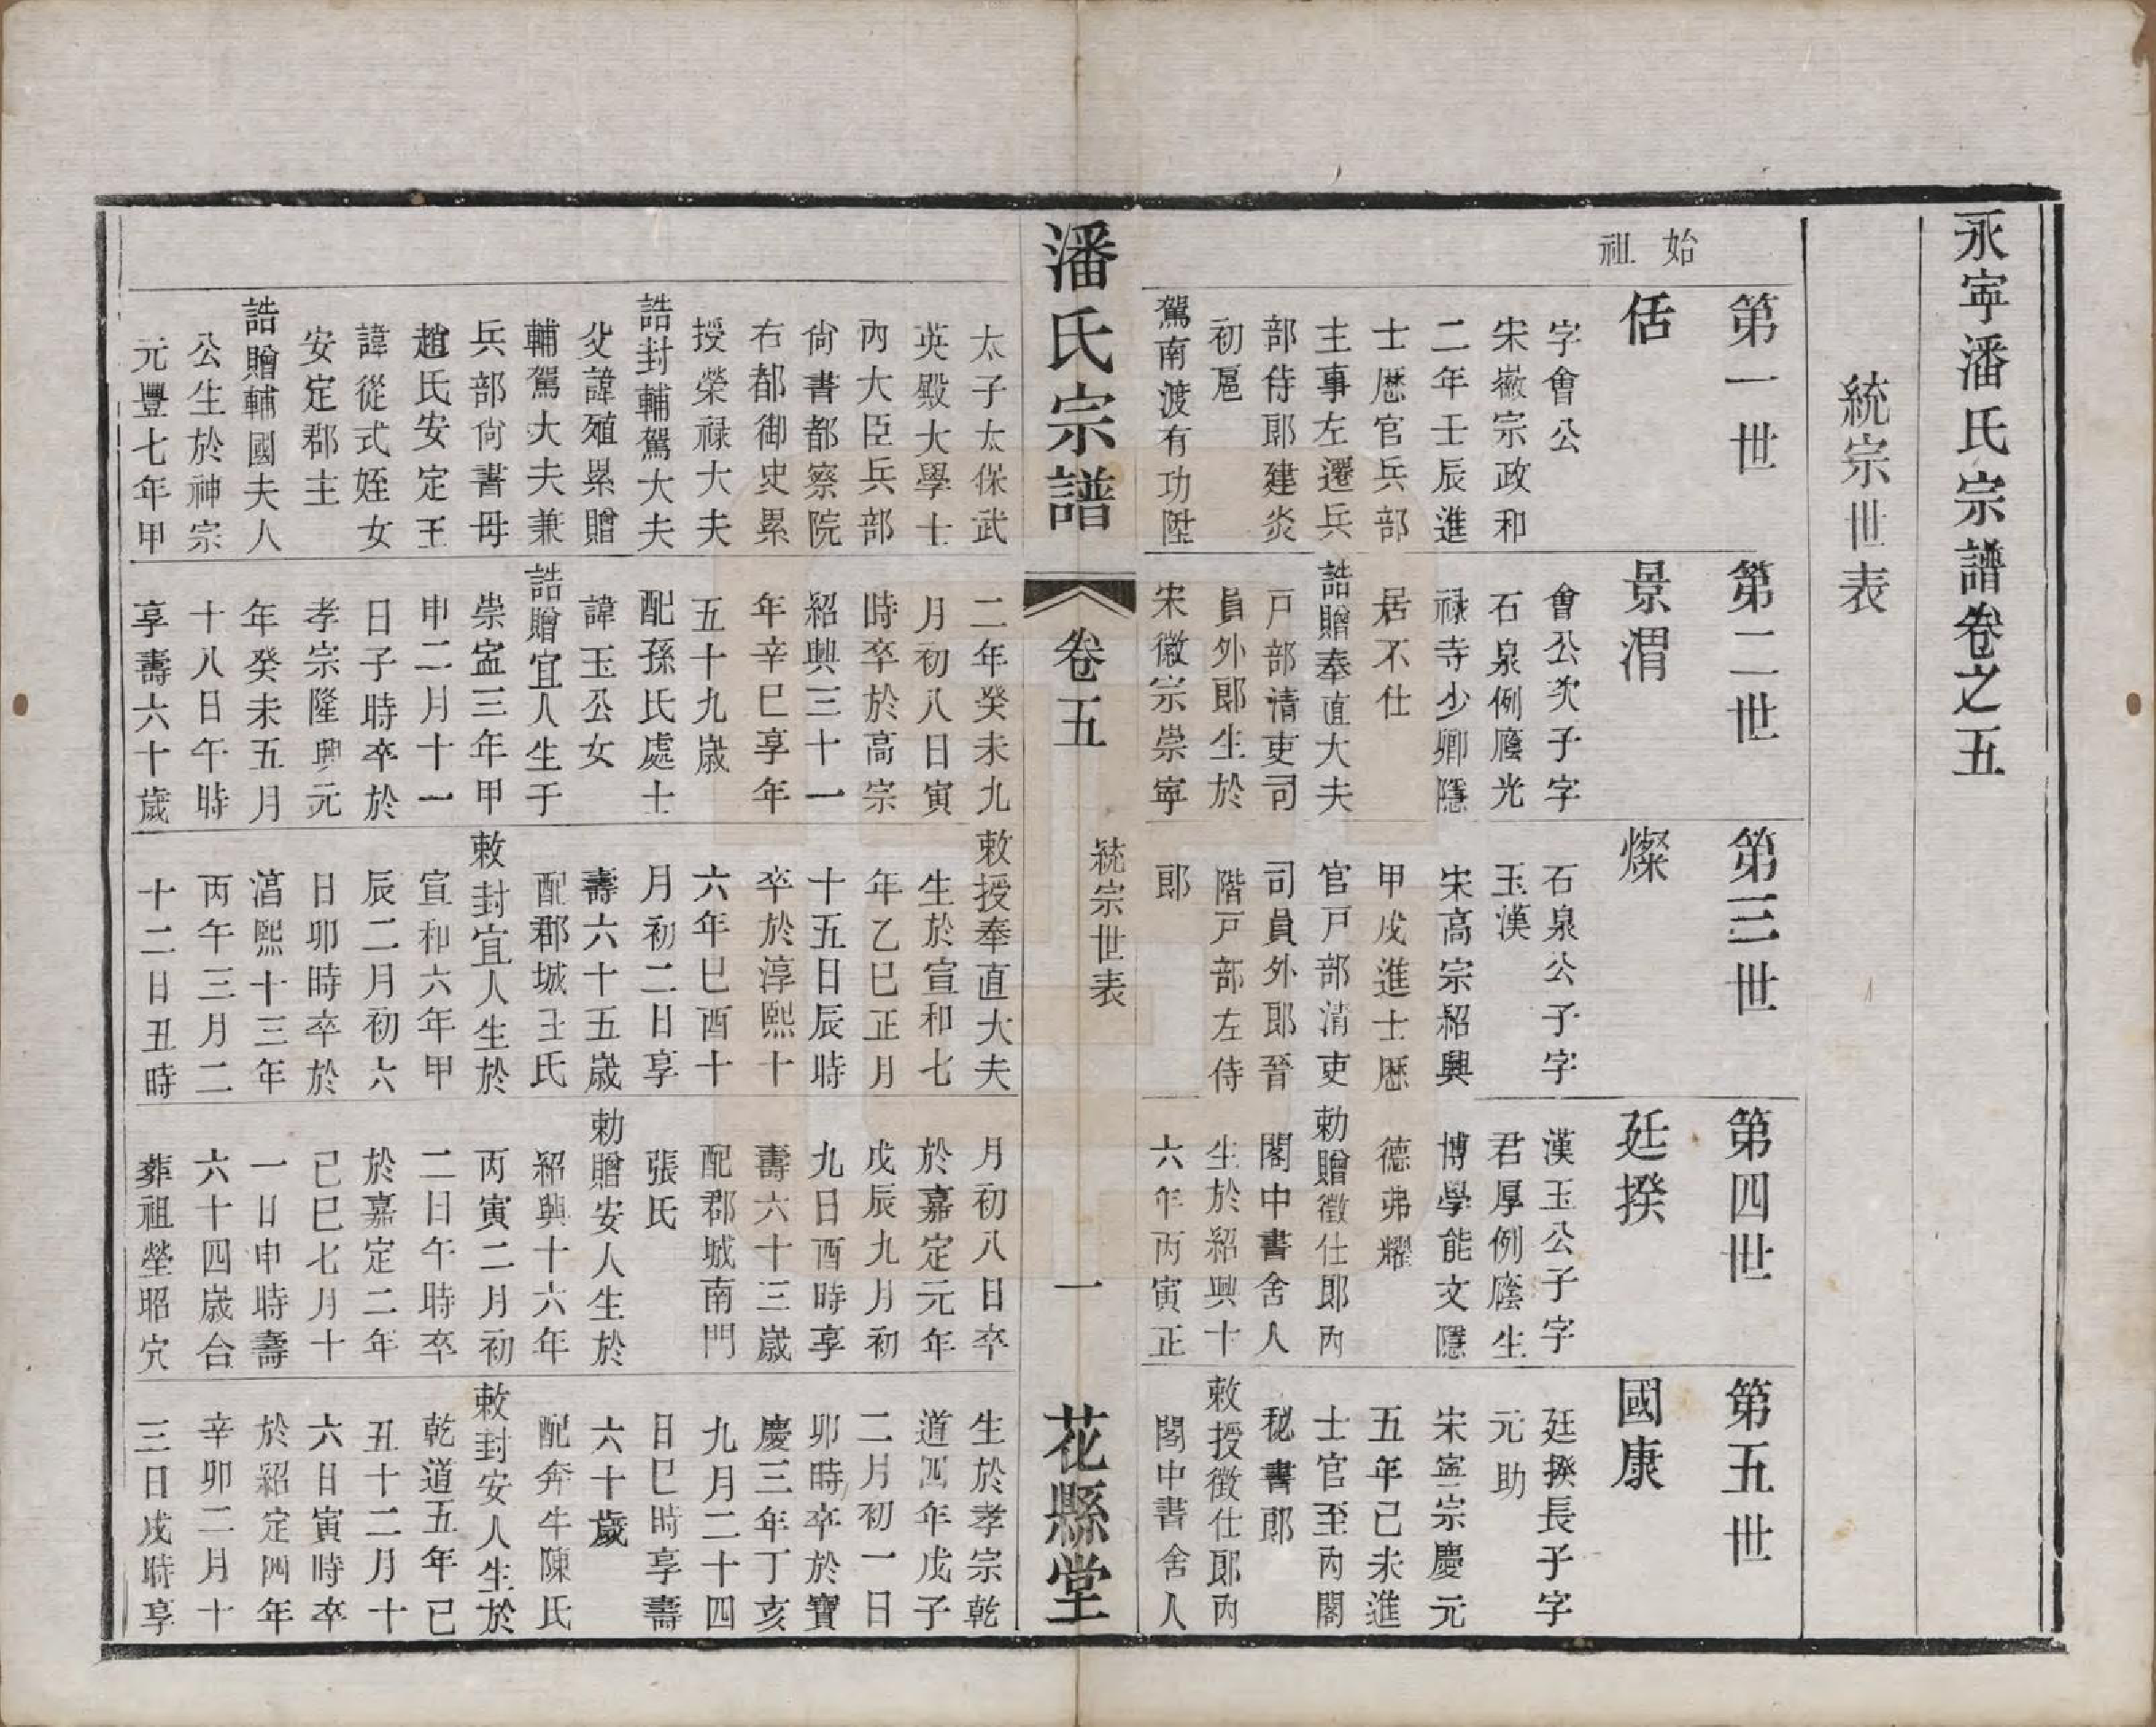 永寧潘氏宗譜卷之五
統宗世表
第一世
始祖
佸
字會公
宋徽宗政和
二年壬辰進
士歷官兵部
主事左遷兵
部侍郎建炎
初扈
駕南渡有功陞
太子太保武
英殿大學士
內大臣兵部
尙書都察院
右都御史累
授榮祿大夫
誥封輔駕大夫
父諱殖累贈
輔駕大夫兼
兵部尙書母
趙氏安定王
諱從式姪女
安定郡主
誥贈輔國夫人
公生於神宗
元豐七年甲
第二世
景渭
會公次子字
石泉例廕光
祿寺少卿隱
居不仕
誥贈奉直大夫
戸部清吏司
員外郎生於
宋徽宗崇寧
二年癸未九
月初八日寅
時卒於高宗
紹興三十一
年辛巳享年
五十九歲
配孫氏處士
諱玉公女
誥贈宜人生于
崇寍三年甲
申二月十一
日子時卒於
孝宗隆興元
年癸未五月
十八日午時
享壽六十歲
第三世
燦
石泉公子字
玉漢
宋高宗紹興
甲戌進士歷
官戸部清吏
司員外郎晉
階戸部左侍
郎
敕授奉直大夫
生於宣和七
年乙巳正月
十五日辰時
卒於淳熙十
六年巳酉十
月初二日享
壽六十五歲
配郡城王氏
敕封宜人生於
宣和六年甲
辰二月初六
日卯時卒於
湻熙十三年
丙午三月二
十二日丑時
第四世
廷揆
漢玉公子字
君厚例廕生
博學能文隱
德弗耀
勅贈徵仕郎內
閣中書舍人
生於紹興十
六年丙寅正
月初八日卒
於嘉定元年
戊辰九月初
九日酉時享
壽六十三歲
配郡城南門
張氏
勅贈安人生於
紹興十六年
丙寅二月初
二日午時卒
於嘉定二年
己巳七月十
一日申時壽
六十四歲合
葬祖塋昭穴
第五世
國康
廷揆長子字
元助
宋寍宗慶元
五年己未進
士官至內閣
秘書郎
敕授徵仕郎內
閣中書舍人
生於孝宗乾
道四年戊子
二月初一日
卯時卒於寶
慶三年丁亥
九月二十四
日巳時享壽
六十歲
配奔牛陳氏
敕封安人生於
乾道五年己
丑十二月十
六日寅時卒
於紹定四年
辛卯二月十
三日戌時享
潘氏宗譜
卷五
統宗世表
一
花縣堂